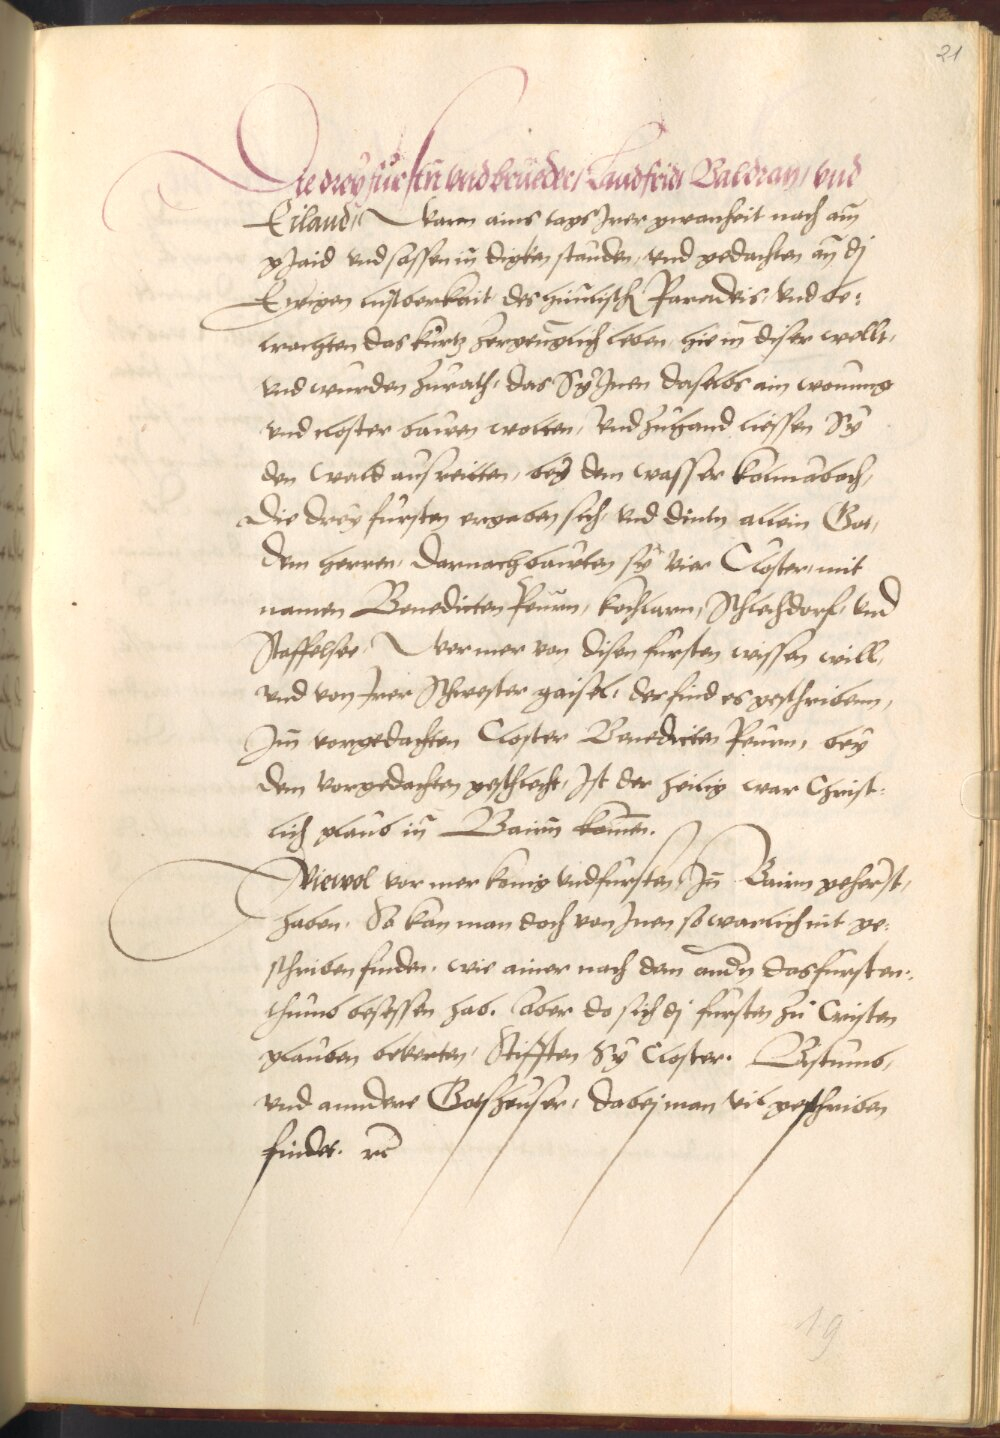 21
Die drey fürstn vnd brueder, Landfrid, Baldran, vnd
Eiland, Warn ains tags Irer gwanheit nach am
gJaid vnd sassen in digken standen, vnd gedachten an dj
Ewigen lustberkait des himlisch Paradeis, vnd be:
trachten das kurtz zergenglich leben, hie in diser wellt,
vnd wurden zurath, das Sy Inen daselbs ain wonung
vnd closter bawen wolten, vnd zuhand liessen Sy
den wald ausreitten, bey dem wasser kolmabach,
die drey fursten ergaben sich, vnd dintn allein Got,
dem herren, Darnach bauten sy vier Closter, mit
namen Benedicten Peurn, kochlarn, Schlechdorf, vnd
Staffelsee, Wer mer von disen fursten wissen will,
vnd von Irer Schwester gaisel, der find es geschribenn,
Im vorgedachten Closter Benedicten Peurn, bey
dem vorgedachten geschlecht, Ist der heilig war Christ:
lich glaub in Bairn komen.
Wiewol vor mer konig vnd fursten, In Bairn geherst,
haben, So kan man doch von Inen so warlich nit ge:
schriben finden, wie ainer nach dem andn das fursten:
thumb besessen hab. Aber do sich dj fursten zu Cristen
glauben bekerten, Stifften Sy Closter. Bistumb,
vnd anndere Gotsheuser, dabej man vil geschriben
findet. rc
19